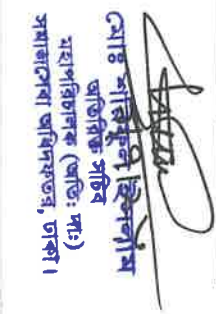 মোঃ
অতিরিক্ত সচিব
মহাপরিচালক (অতি: দা:)
সমাজসেবা অধিদফতর, ঢাকা।